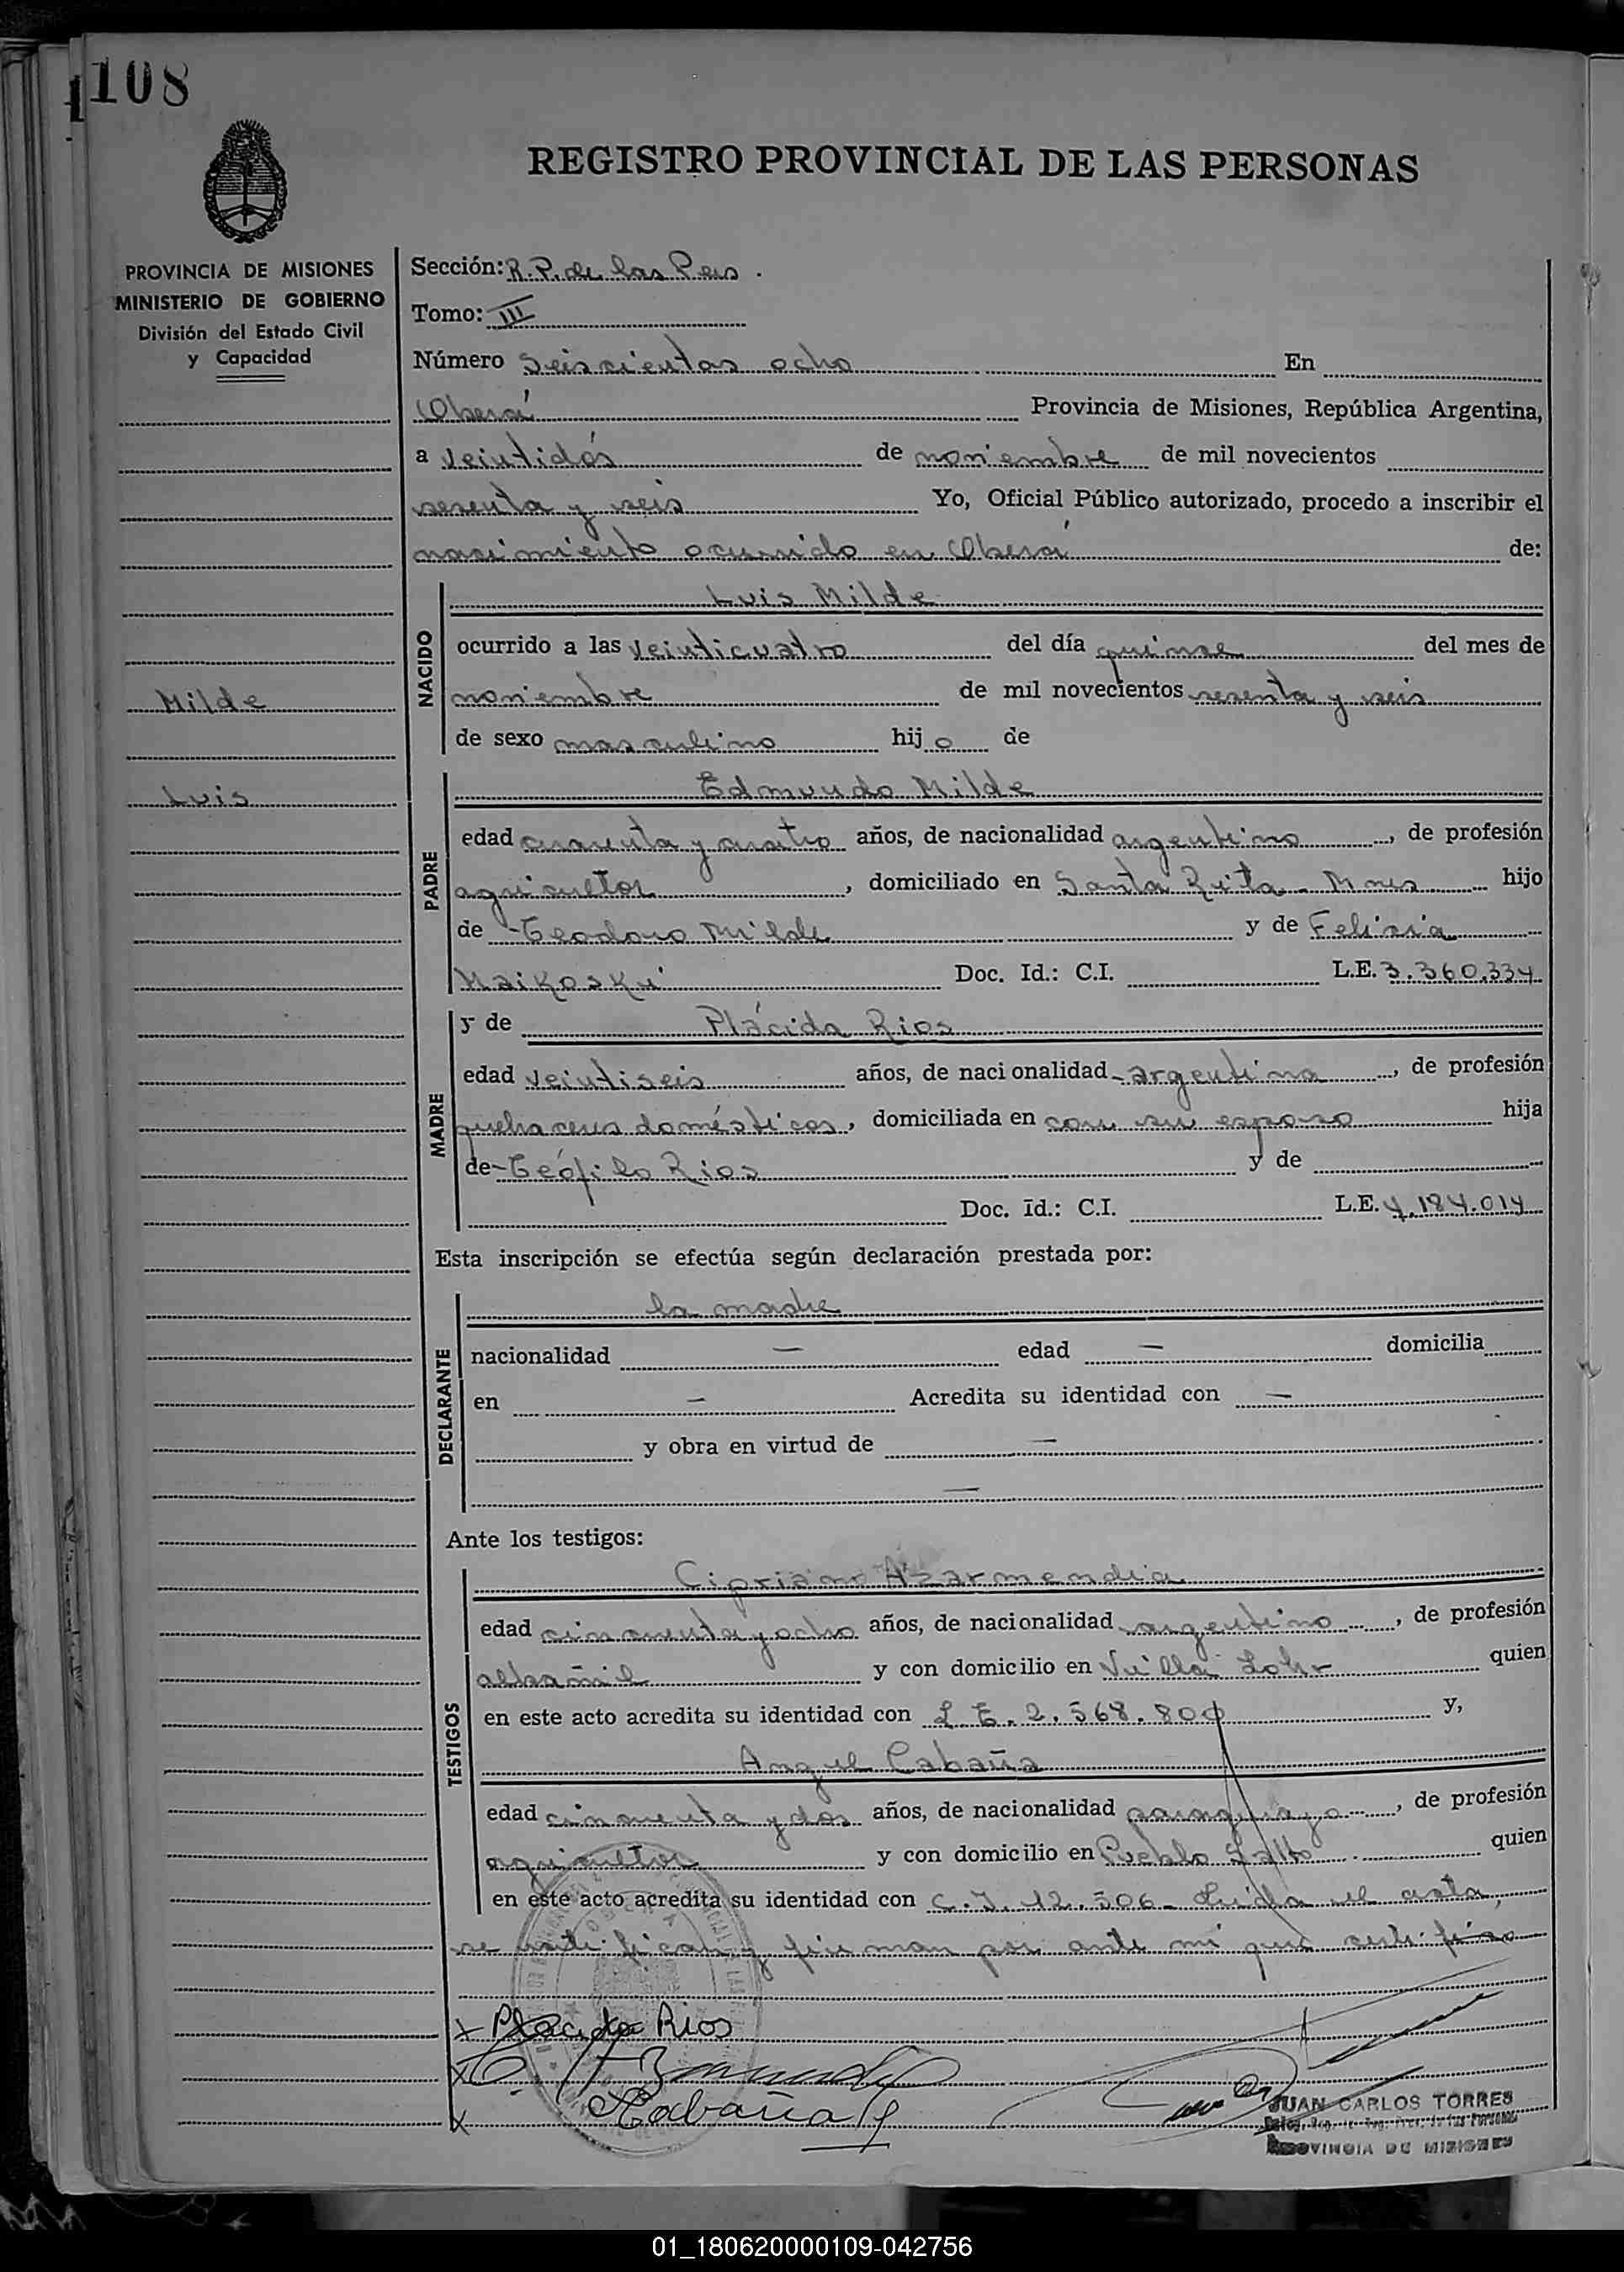 108
REGISTRO PROVINCIAL DE LAS PERSONAS
PROVINCIA DE MISIONES
MINISTERIO DE GOBIERNO
División del Estado Civil
y Capacidad
Milde
Luis
Sección: R. P. de las Pers.
Tomo: III
Número Seiscientos ocho En
Oberá Provincia de Misiones, República Argentina,
a veintidós de noviembre de mil novecientos
sesenta y seis Yo, Oficial Público autorizado, procedo a inscribir el
nacimiento ocurrido en Oberá de:
NACIDO
Luis Milde
ocurrido a las veinticuatro del día quince del mes de
noviembre de mil novecientos sesenta y seis
de sexo masculino hijo de
PADRE
Edmundo Milde
edad cuarenta y cuatro años, de nacionalidad argentino, de profesión
agricultor, domiciliado en Santa Rita - Mnes hijo
de Teodoro Milde y de Felisia
Maikoski Doc. Id.: C.I. L.E. 3.360.334
MADRE
y de Plácida Rios
edad veintiseis años, de nacionalidad argentina, de profesión
quehaceres domésticos, domiciliada en con su esposo hija
de Teófilo Rios y de
Doc. Id.: C.I. L.E. 4.184.014
Esta inscripción se efectúa según declaración prestada por:
DECLARANTE
la madre
nacionalidad — edad — domicilia
en — Acredita su identidad con —
y obra en virtud de —
—
Ante los testigos:
TESTIGOS
Cipriano Azarmendia
edad cincuenta y ocho años, de nacionalidad argentino, de profesión
albañil y con domicilio en Villa Lohr quien
en este acto acredita su identidad con L.E. 2.568.800 y,
Angel Cabaña
edad cincuenta y dos años, de nacionalidad paraguayo, de profesión
agricultor y con domicilio en Pueblo Salto quien
en este acto acredita su identidad con C.I. 12.506 - Leida el acta,
se ratifican y firman por ante mí que certifico
x Placida Rios
x
x Cabaña
JUAN CARLOS TORRES
PROVINCIA DE MISIONES
01_180620000109-042756